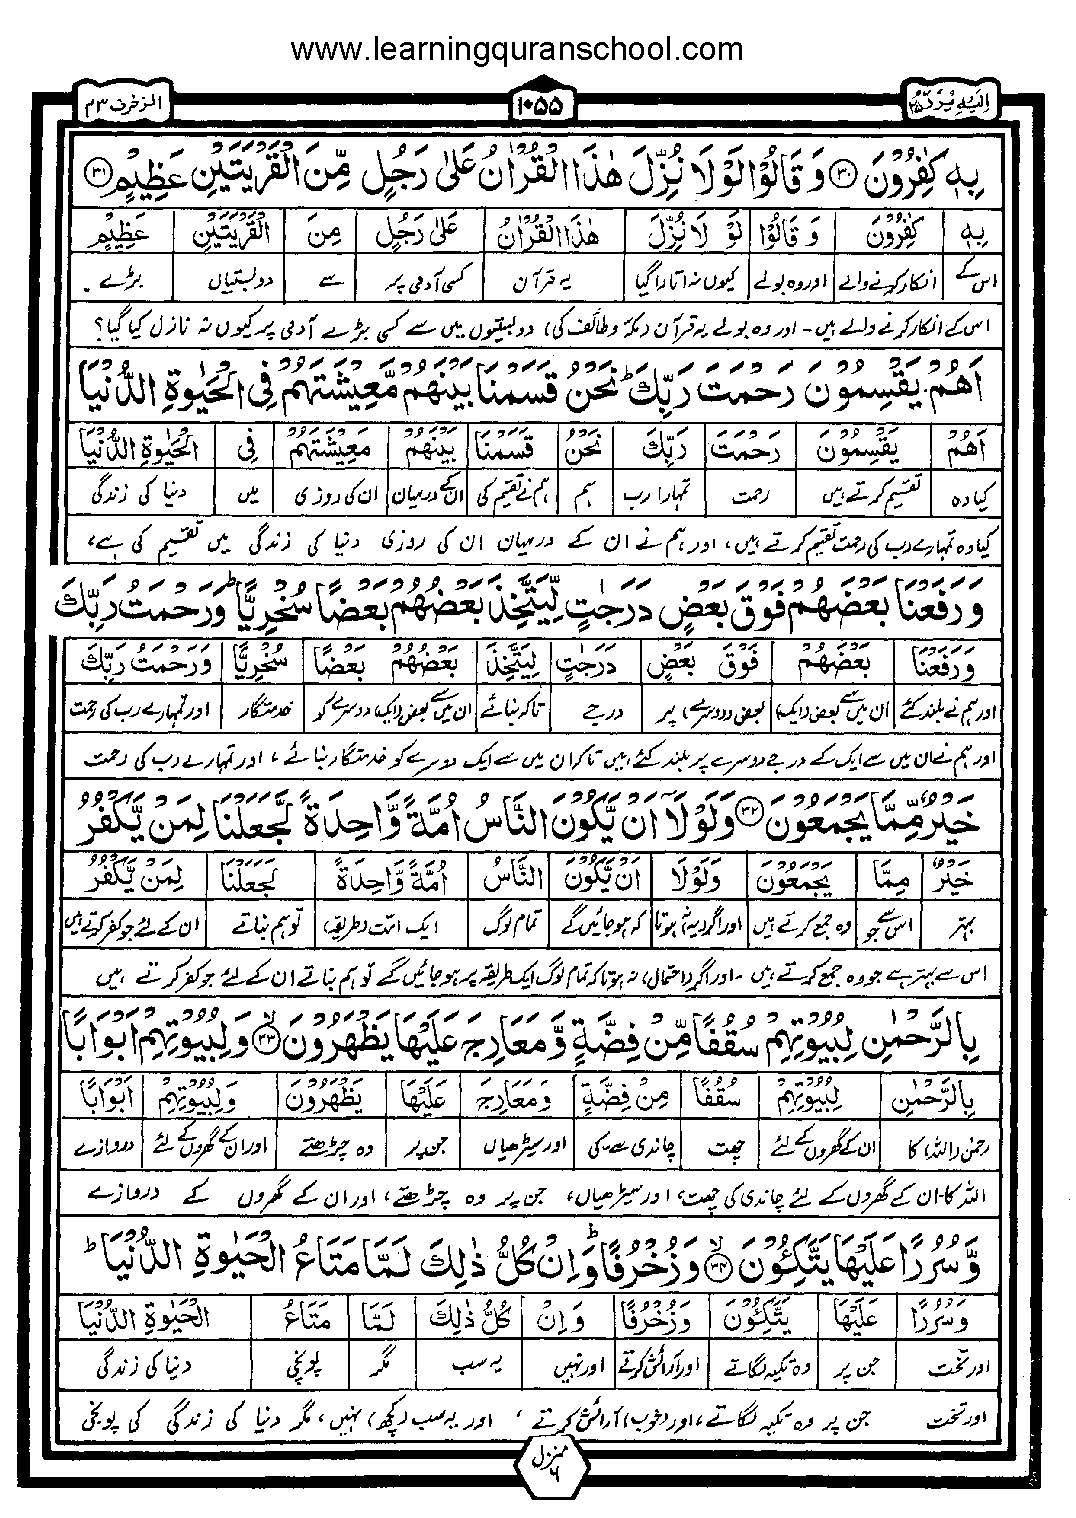 www.learningquranschool.com
الزخرف ۴۳
۱۰۵۵
اِلَیْهِ یُرَدُّ ۲۵
بِهٖ كٰفِرُوْنَ ۳۰ وَ قَالُوْا لَوْ لَا نُزِّلَ هٰذَا الْقُرْاٰنُ عَلٰى رَجُلٍ مِّنَ الْقَرْیَتَیْنِ عَظِیْمٍ ۳۱
بِهٖ كٰفِرُوْنَ وَ قَالُوْا لَوْ لَا نُزِّلَ هٰذَا الْقُرْاٰنُ عَلٰى رَجُلٍ مِنَ الْقَرْیَتَیْنِ عَظِیْمٍ
اس کے انکار کرنے والے اور وہ بولے کیوں نہ اتارا گیا یہ قرآن کسی آدمی پر سے دو بستیاں بڑے۔
اس کے انکار کرنے والے ہیں۔ اور وہ بولے یہ قرآن (مکہ و طائف کی) دو بستیوں میں سے کسی بڑے آدمی پر کیوں نہ نازل کیا گیا؟
اَهُمْ یَقْسِمُوْنَ رَحْمَتَ رَبِّكَ ؕ نَحْنُ قَسَمْنَا بَیْنَهُمْ مَّعِیْشَتَهُمْ فِی الْحَیٰوةِ الدُّنْیَا
اَهُمْ یَقْسِمُوْنَ رَحْمَتَ رَبِّكَ نَحْنُ قَسَمْنَا بَیْنَهُمْ مَعِیْشَتَهُمْ فِی الْحَیٰوةِ الدُّنْیَا
کیا وہ تقسیم کرتے ہیں رحمت تمہارا رب ہم ہم نے تقسیم کی ان کے درمیان ان کی روزی میں دنیا کی زندگی
کیا وہ تمہارے رب کی رحمت تقسیم کرتے ہیں، اور ہم نے ان کے درمیان ان کی روزی دنیا کی زندگی میں تقسیم کی ہے،
وَ رَفَعْنَا بَعْضَهُمْ فَوْقَ بَعْضٍ دَرَجٰتٍ لِّیَتَّخِذَ بَعْضُهُمْ بَعْضًا سُخْرِیًّا ؕ وَ رَحْمَتُ رَبِّكَ
وَ رَفَعْنَا بَعْضَهُمْ فَوْقَ بَعْضٍ دَرَجٰتٍ لِیَتَّخِذَ بَعْضُهُمْ بَعْضًا سُخْرِیًّا وَ رَحْمَتُ رَبِّكَ
اور ہم نے بلند کئے ان میں سے بعض (ایک) بعض (دوسرے) پر درجے تاکہ بنائے ان میں سے بعض (ایک) دوسرے کو خدمتگار اور تمہارے رب کی رحمت
اور ہم نے ان میں سے ایک کے درجے دوسرے پر بلند کئے ہیں تاکہ ان میں سے ایک دوسرے کو خدمتگار بنائے، اور تمہارے رب کی رحمت
خَیْرٌ مِّمَّا یَجْمَعُوْنَ ۳۲ وَ لَوْ لَاۤ اَنْ یَّكُوْنَ النَّاسُ اُمَّةً وَّاحِدَةً لَّجَعَلْنَا لِمَنْ یَّكْفُرُ
خَیْرٌ مِمَّا یَجْمَعُوْنَ وَ لَوْ لَا اَنْ یَّكُوْنَ النَّاسُ اُمَّةً وَّاحِدَةً لَجَعَلْنَا لِمَنْ یَّكْفُرُ
بہتر اس سے جو وہ جمع کرتے ہیں اور اگر (یہ) نہ ہوتا کہ ہو جائیں گے تمام لوگ ایک امت (طریقہ) تو ہم بناتے ان کے لئے جو کفر کرتے ہیں
اس سے بہتر ہے جو وہ جمع کرتے ہیں۔ اور اگر (احتمال) نہ ہوتا کہ تمام لوگ ایک طریقہ پر ہو جائیں گے تو ہم بناتے ان کے لئے جو کفر کرتے ہیں
بِالرَّحْمٰنِ لِبُیُوْتِهِمْ سُقُفًا مِّنْ فِضَّةٍ وَّ مَعَارِجَ عَلَیْهَا یَظْهَرُوْنَ ۳۳ وَ لِبُیُوْتِهِمْ اَبْوَابًا
بِالرَّحْمٰنِ لِبُیُوْتِهِمْ سُقُفًا مِنْ فِضَّةٍ وَ مَعَارِجَ عَلَیْهَا یَظْهَرُوْنَ وَ لِبُیُوْتِهِمْ اَبْوَابًا
رحمٰن (اللہ) کا ان کے گھروں کے لئے چھت چاندی سے کی اور سیڑھیاں جن پر وہ چڑھتے اور ان کے گھروں کے لئے دروازے
اللہ کا۔ ان کے گھروں کے لئے چاندی کی چھت، اور سیڑھیاں، جن پر وہ چڑھتے، اور ان کے گھروں کے دروازے
وَّ سُرُرًا عَلَیْهَا یَتَّكِـُٔوْنَ ۳۴ وَ زُخْرُفًا ؕ وَ اِنْ كُلُّ ذٰلِكَ لَمَّا مَتَاعُ الْحَیٰوةِ الدُّنْیَا ؕ
وَ سُرُرًا عَلَیْهَا یَتَّكِـُٔوْنَ وَ زُخْرُفًا وَ اِنْ كُلُّ ذٰلِكَ لَمَّا مَتَاعُ الْحَیٰوةِ الدُّنْیَا
اور تخت جن پر وہ تکیہ لگاتے اور آرائش کرتے اور نہیں یہ سب مگر پونجی دنیا کی زندگی
اور تخت جن پر وہ تکیہ لگاتے، اور (خوب) آرائش کرتے، اور یہ سب (کچھ) نہیں، مگر دنیا کی زندگی کی پونجی
منزل ۶